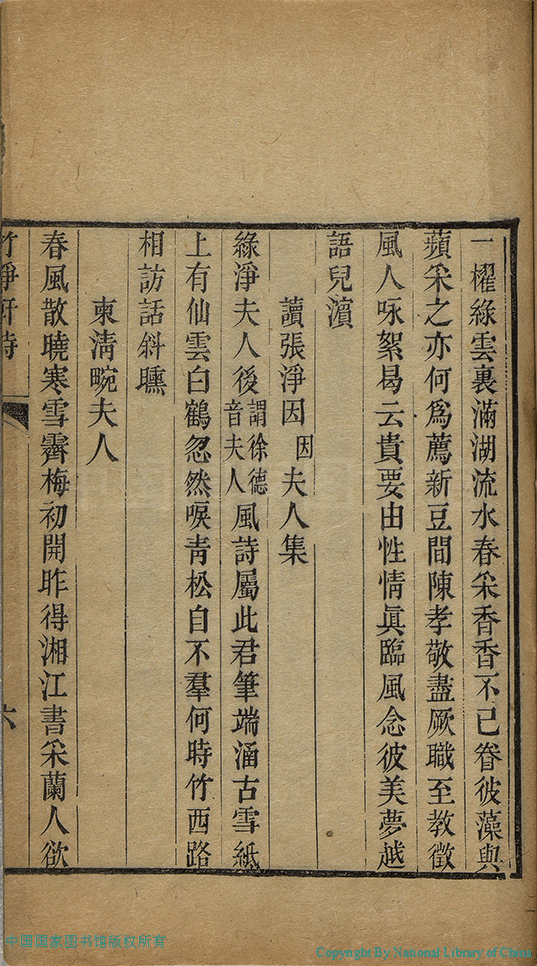 一櫂綠雲裏滿湖流水春采香香不已眷彼藻與
蘋采之亦何爲薦新豆間陳孝敬盡厥職至教徵
風人咏絮曷云貴要由性情眞臨風念彼美夢越
語兒濵
讀張淨因因夫人集
綠淨夫人後謂徐德音夫人風詩屬此君筆端涵古雪紙
上有仙雲白鶴忽然唳青松自不羣何時竹西路
相訪話斜曛
柬淸畹夫人
春風散曉寒雪霽梅初開昨得湘江書采蘭人欲
竹淨軒詩
六
中国國家图书馆版权所有
Copyright By National Library of China